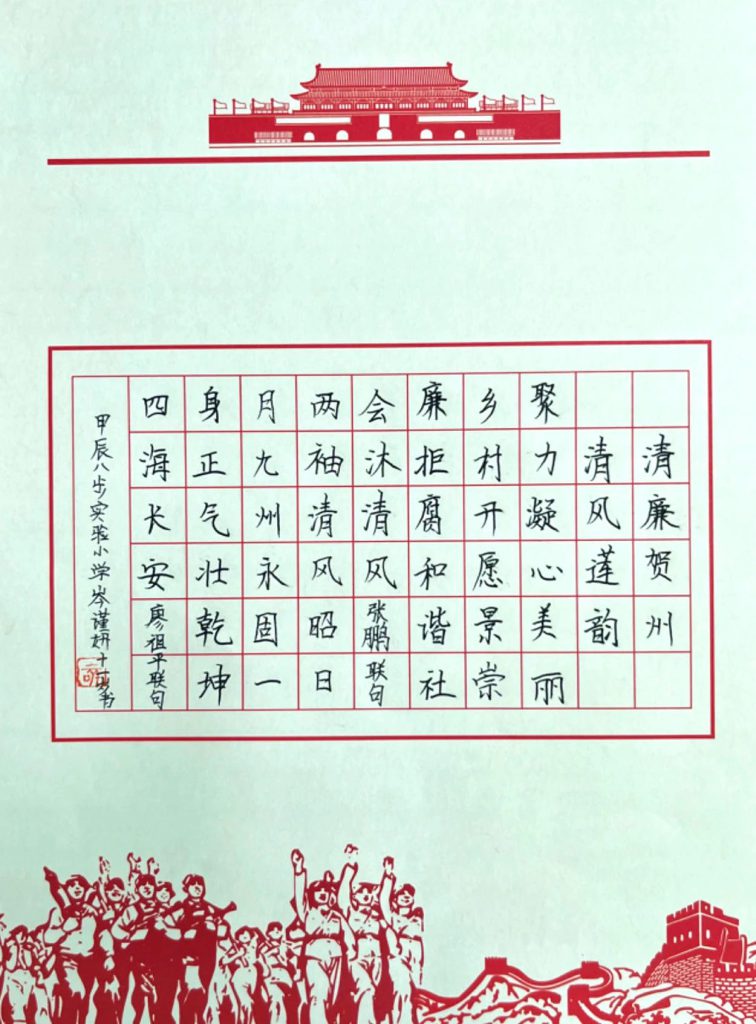 清廉贺州
清风莲韵
聚力凝心美丽
乡村开愿景崇
廉拒腐和谐社
会沐清风张鹏联句
两袖清风昭日
月九州永固一
身正气壮乾坤
四海长安廖祖平联句
甲辰八步实验小学岑谨妍十一岁书